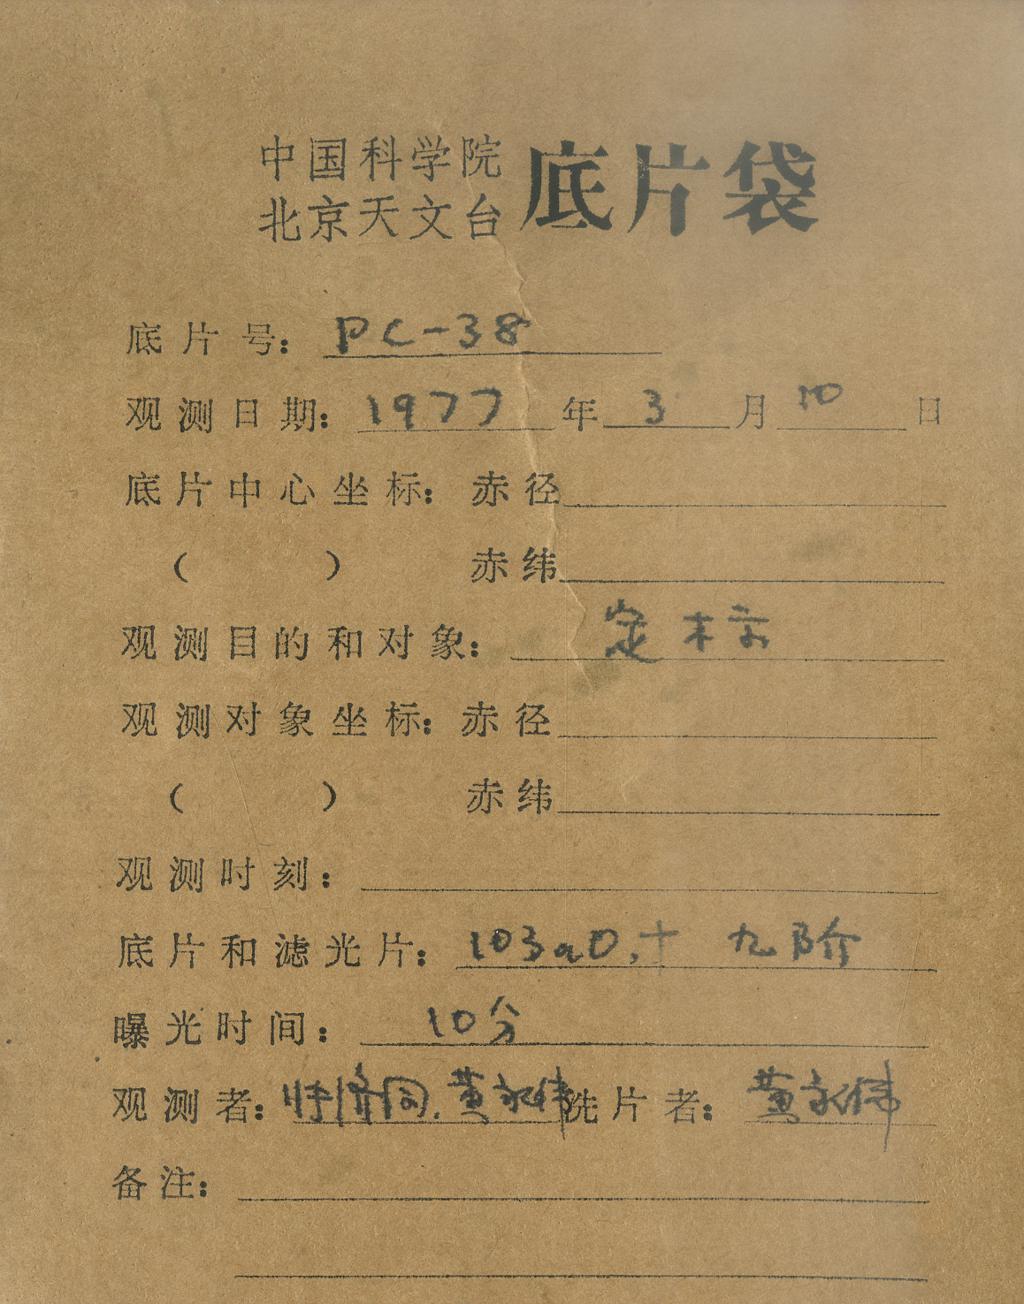 中国科学院
北京天文台
底片袋
底片号：PC-38
观测日期：1977年3月10日
底片中心坐标：赤径
（ ） 赤纬
观测目的和对象：定标
观测对象坐标：赤径
（ ） 赤纬
观测时刻：
底片和滤光片：103aO,十 九阶
曝光时间：10分
观测者：黄永伟 洗片者：黄永伟
备注：